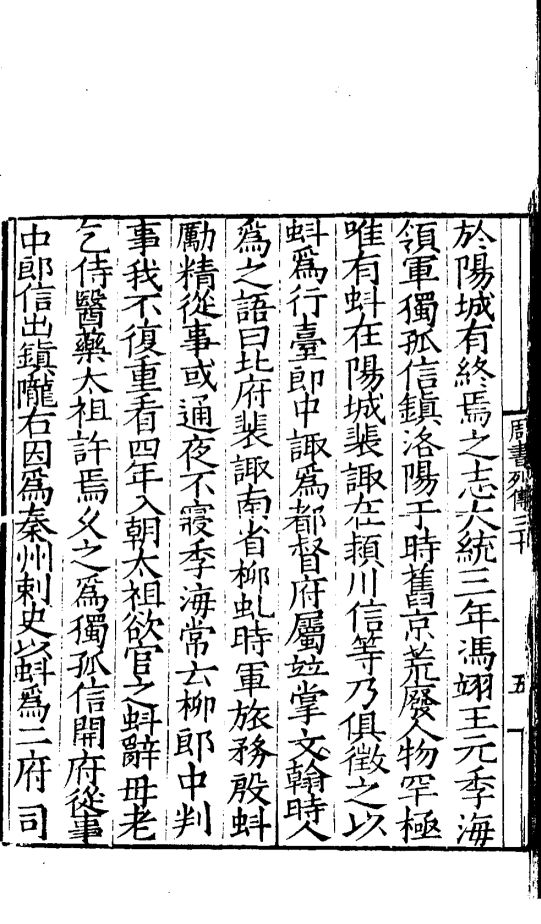 周書列傳三十
五
於陽城有終焉之志大統三年馮翊王元季海
領軍獨孤信鎮洛陽于時舊京荒廢人物罕極
唯有蚪在陽城裴諏在潁川信等乃俱徵之以
蚪爲行臺郎中諏爲都督府屬竝掌文翰時人
爲之語曰北府裴諏南省柳虬時軍旅務殷蚪
勵精從事或通夜不寢季海常云柳郎中判
事我不復重看四年入朝太祖欲官之蚪辭母老
乞侍醫藥太祖許焉久之爲獨孤信開府從事
中郎信出鎮隴右因爲秦州刺史以蚪爲二府司